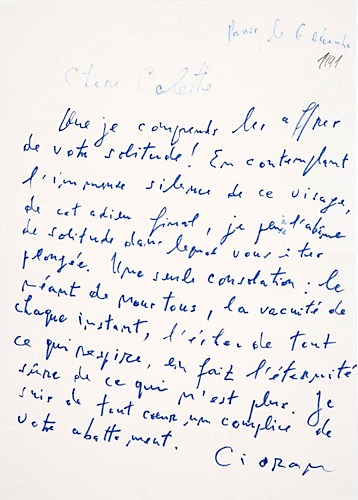 Paris, le 6 décembre
1991
Chère Colette
Que je comprends les affres
de votre solitude! En contemplant
l'immense silence de ce visage,
de cet adieu final, je pense à l'abîme
de solitude dans lequel vous êtes
plongée. Une seule consolation: le
néant de nous tous, la vacuité de
chaque instant, de tout
ce qui respire, en fait l'éternité
sûre de ce qui n'est plus. Je
suis de tout cœur, un complice de
votre abattement.
Cioran